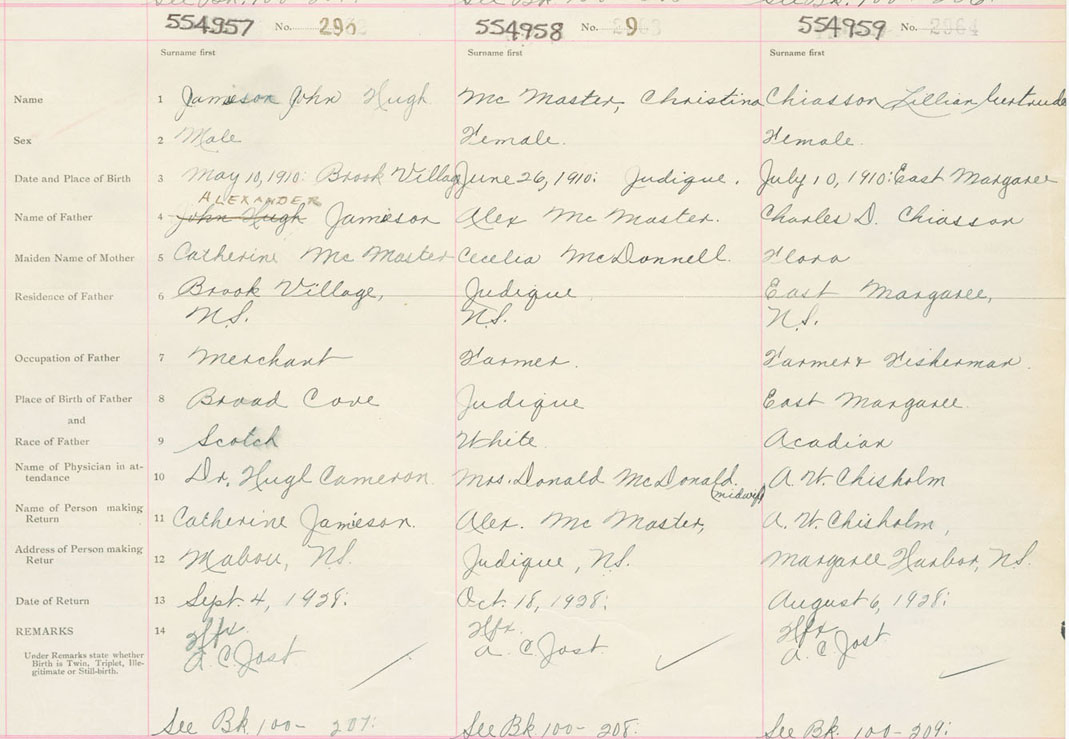 See Bk. 100-
See Bk 100-
See Bk. 100- 206.
554957 No. 290
554958 No. 29 3
554959 No. 2964
Surname first
Surname first
Surname first
Name 1 Jamieson John Hugh Mc Master, Christina Chiasson Lillian Gertrude
Sex 2 Male Female. Female.
ALEXANDER
Date and Place of Birth 3 May 10, 1910: Brook Village June 26, 1910: Judique. July 10, 1910: East Margaree
Name of Father 4 John Hugh Jamieson Alex Mc Master. Charles D. Chiasson
Maiden Name of Mother 5 Catherine Mc Master Cecelia McDonnell. Flora
Residence of Father 6 Brook Village, Judique East Margaree,
N.S. N.S. N.S.
Occupation of Father 7 Merchant Farmer. Farmer & Fisherman.
Place of Birth of Father 8 Broad Cove Judique East Margaree.
and
Race of Father 9 Scotch White. Acadian
Name of Physician in at-
tendance 10 Dr. Hugh Cameron. Mrs. Donald McDonald. (midwife) A. W. Chisholm
Name of Person making
Return 11 Catherine Jamieson. Alex. Mc Master, A. W. Chisholm,
Address of Person making
Retur 12 Mabou, N.S. Judique, N.S. Margaree Harbor, N.S.
Date of Return 13 Sept. 4, 1928: Oct. 18, 1928: August 6, 1928:
REMARKS 14 Hfx. Hfx. Hfx
A. C. Jost A. C. Jost. A. C. Jost
Under Remarks state whether
Birth is Twin, Triplet, Ille-
gitimate or Still-birth.
See Bk. 100- 207: See Bk. 100- 208: See Bk. 100- 209: